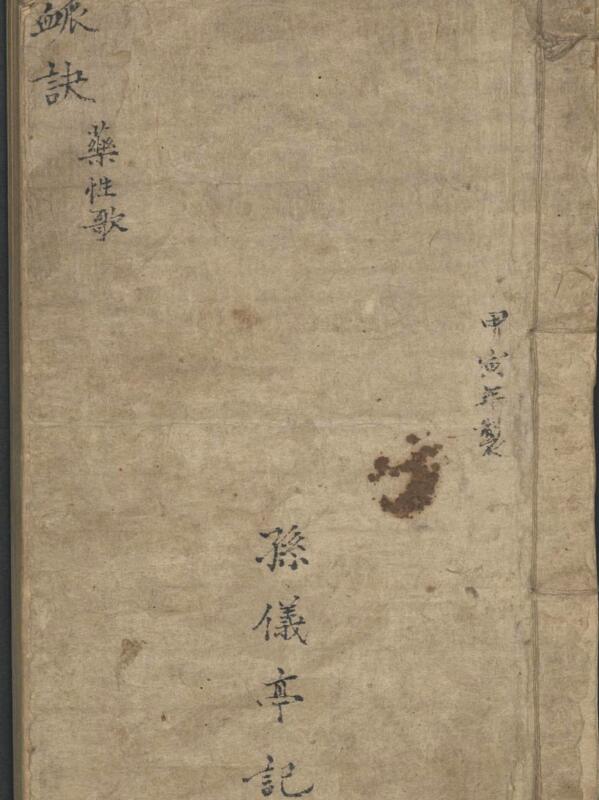 甲寅年製
孫儀亭記
藥性歌
衇訣